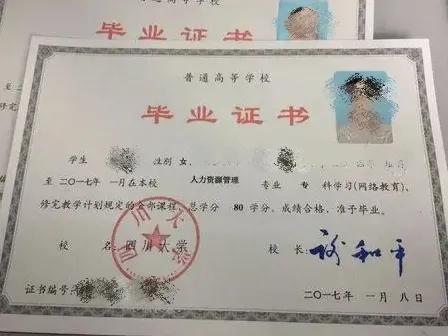 高等学校
毕业证书
普通高等学校
毕业证书
学生 性别 女
至二〇一七年 一月在本校 人力资源管理 专业 专 科学习(网络教育),
修完教学计划规定的全部课程, 总学分 80 学分, 成绩合格, 准予毕业。
校 名: 四川大学 校 长: 谢和平
四川大学
证书编号:
二〇一七年 一月 八日